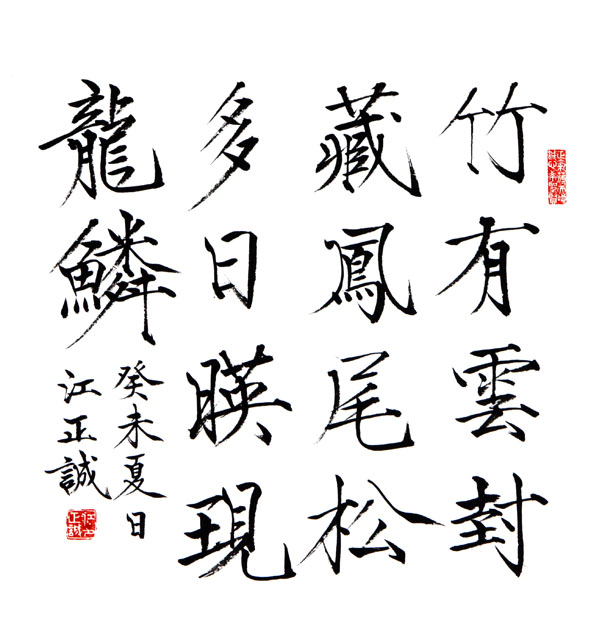 竹有雲封
藏鳳尾松
多日暎現
龍鱗
癸未夏日
江正誠